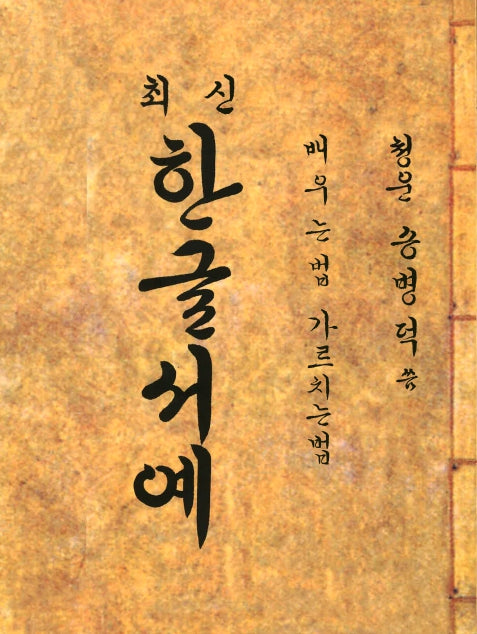 청운 송병덕 씀
배우는법 가르치는법
최신
한글서예